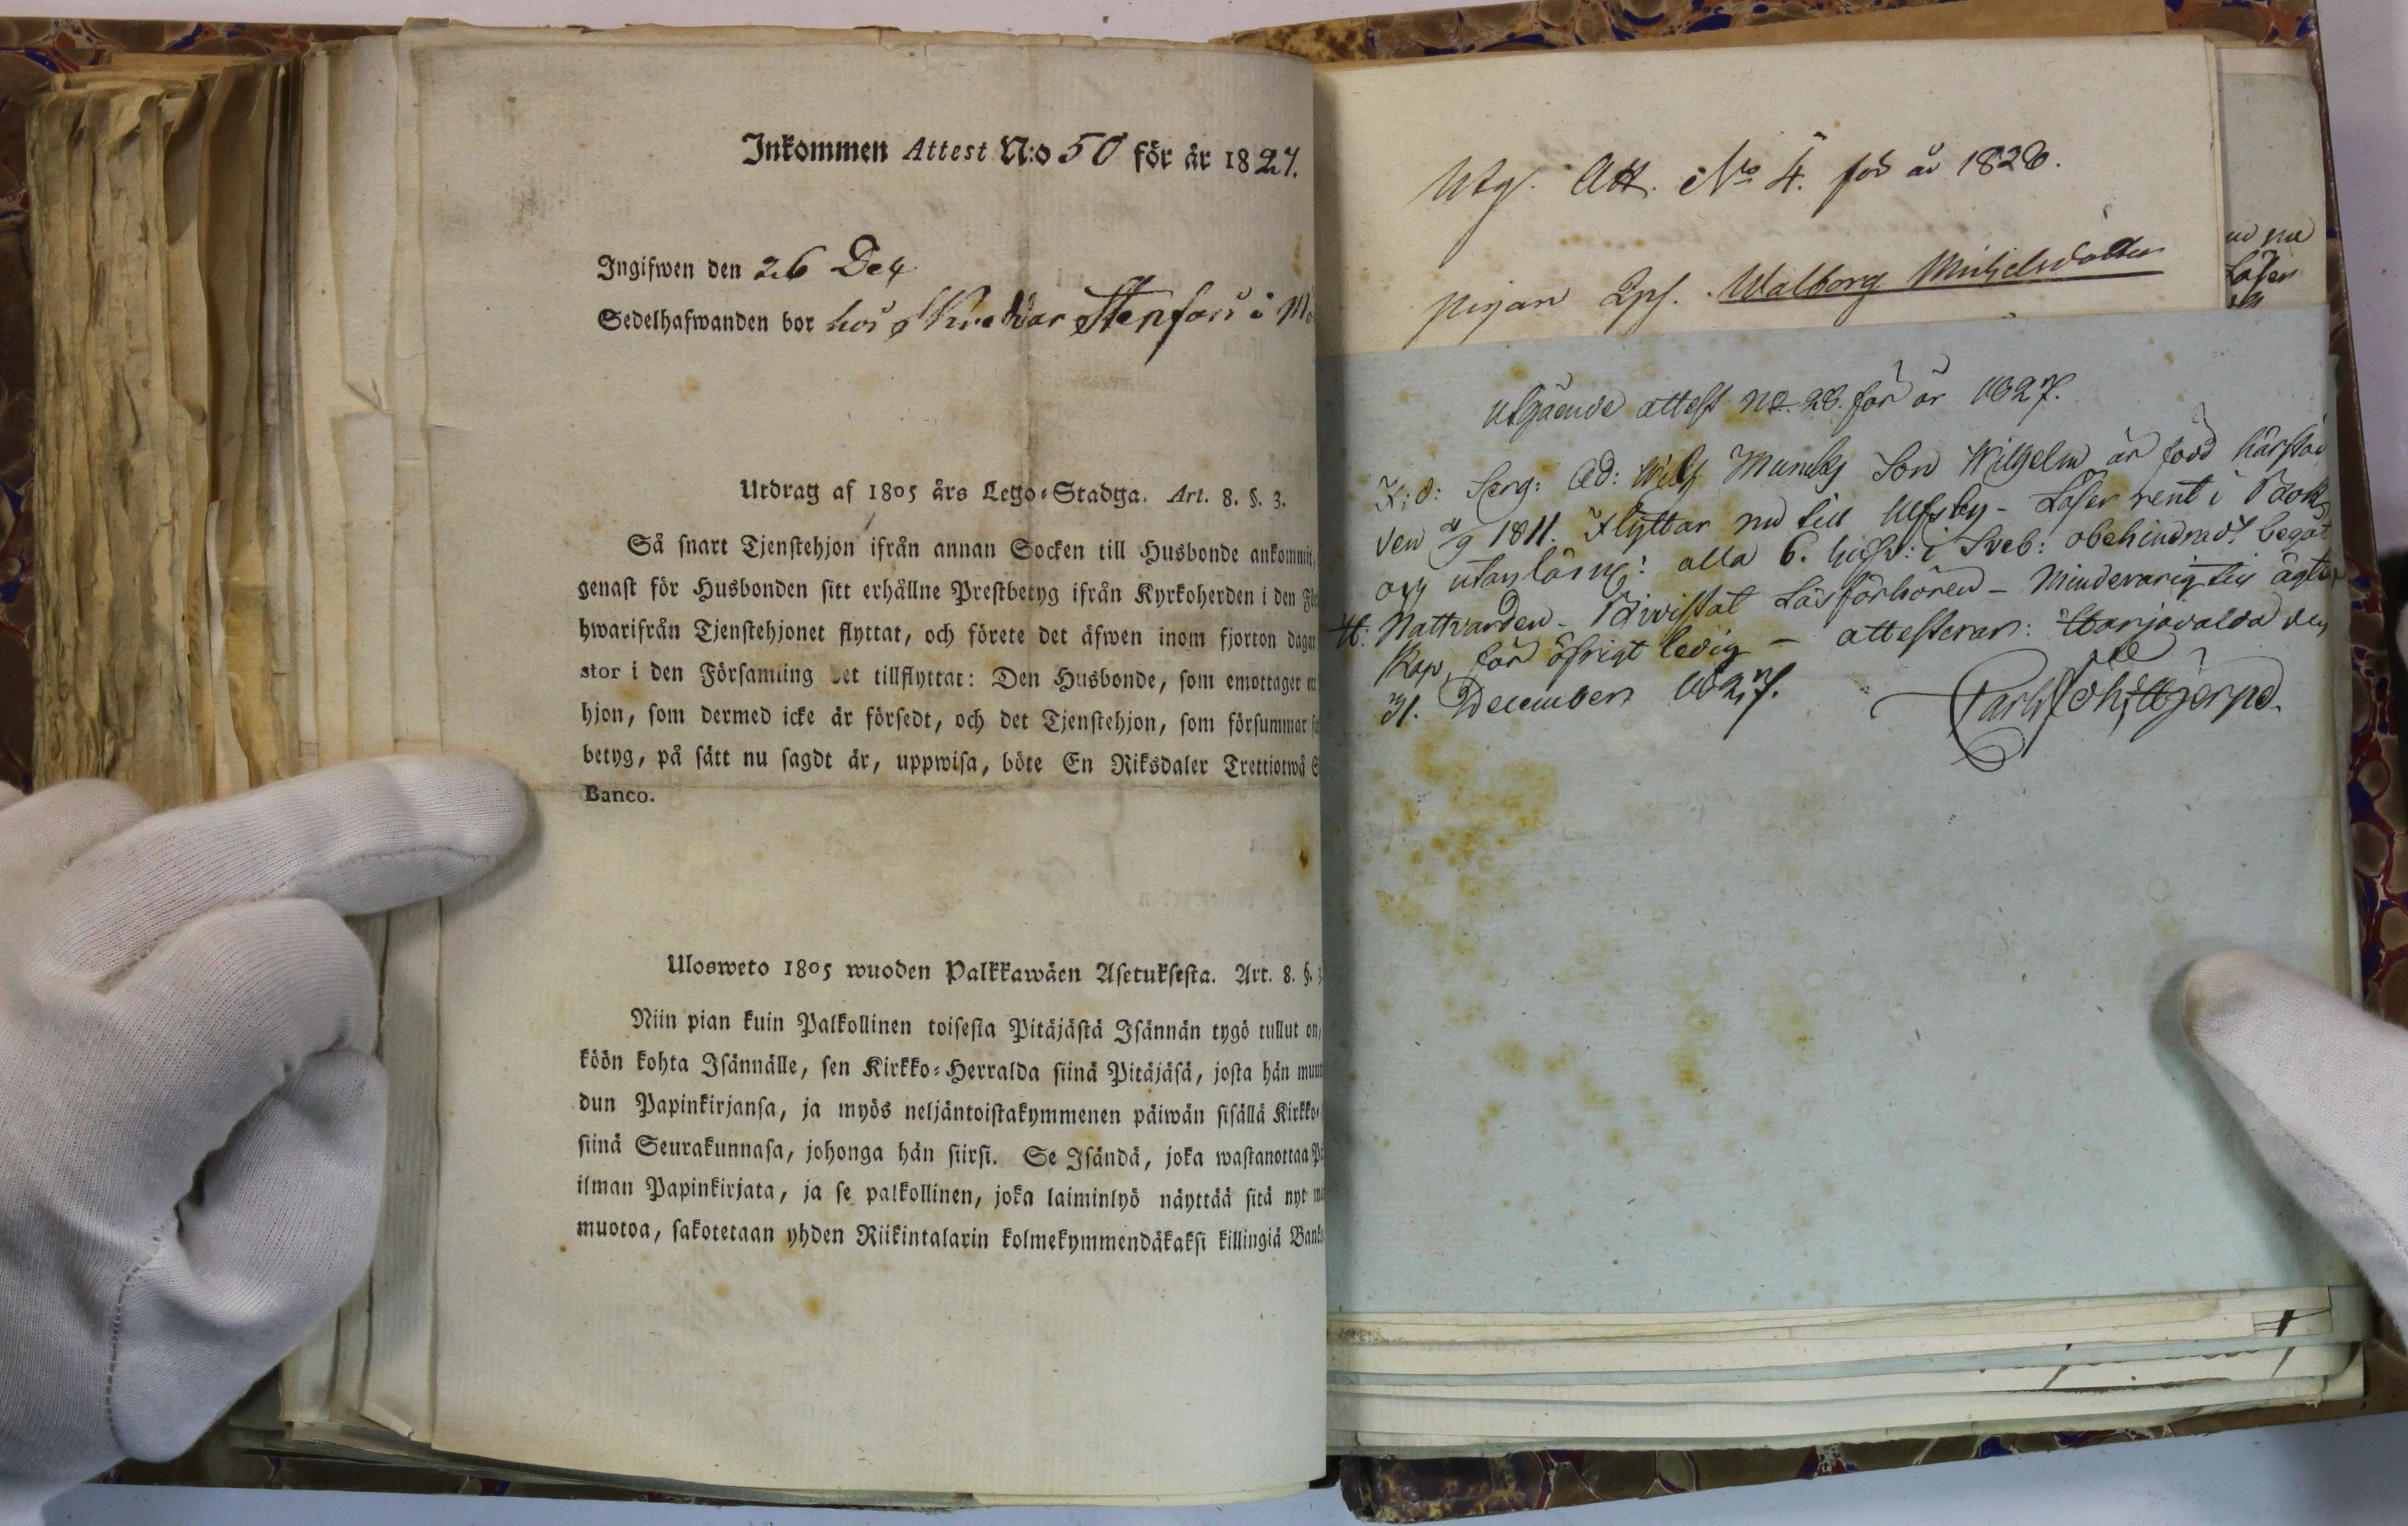 Inkommen Attest N:o 50 för år 1827.
Ingifwen den 26 Dec
Sedelhafwanden bor hos Skreddar Stenfors i
Utdrag af 1805 års Lego-Stadga. Art. 8. §. 3.
Så snart Tjenstehjon ifrån annan Socken till Husbonde ankommit,
genast för Husbonden sitt erhållne Prestbetyg ifrån Kyrkoherden i den
hwarifrån Tjenstehjonet flyttat, och förete det äfwen inom fjorton dagar
stor i den Församling det tillflyttat: Den Husbonde, som emottager
hjon, som dermed icke är försedt, och det Tjenstehjon, som försummar
betyg, på sätt nu sagdt är, uppwisa, böte En Riksdaler Trettiotwå
Banco.
Ulosweto 1805 wuoden Palkkawäen Asetuksesta. Art. 8. §. 3
Niin pian kuin Palkollinen toisesta Pitäjästä Isännän tygö tullut on,
köön kohta Isännälle, sen Kirkko-Herralda siinä Pitäjäsä, josta hän
dun Papinkirjansa, ja myös neljäntoistakymmenen päiwän sisällä Kirkko-
siinä Seurakunnasa, johonga hän siirsi. Se Isändä, joka wastanottaa
ilman Papinkirjata, ja se palkollinen, joka laiminlyö näyttää sitä nyt
muotoa, sakotetaan yhden Riikintalarin kolmekymmendäkaksi killingiä
Utg. Att. No 4. för år 1828.
pigan Walborg Michelsdotter
nu
Läser
Utgående attest no. 28. för år 1827.
Serg: Ad: Muncks Son Wilhelm är född härstäd
den 1811. Flyttar nu till Ulfsby - Läser rent i Bok
och utanläsn: alla 6. i Sveb: obehindradt begåt
H: Nattvarden - Biwistat Läsförhören - Minderårig till ägten
skap, för öfrigt ledig - attesterar: Harjavalda den
31. December 1827.